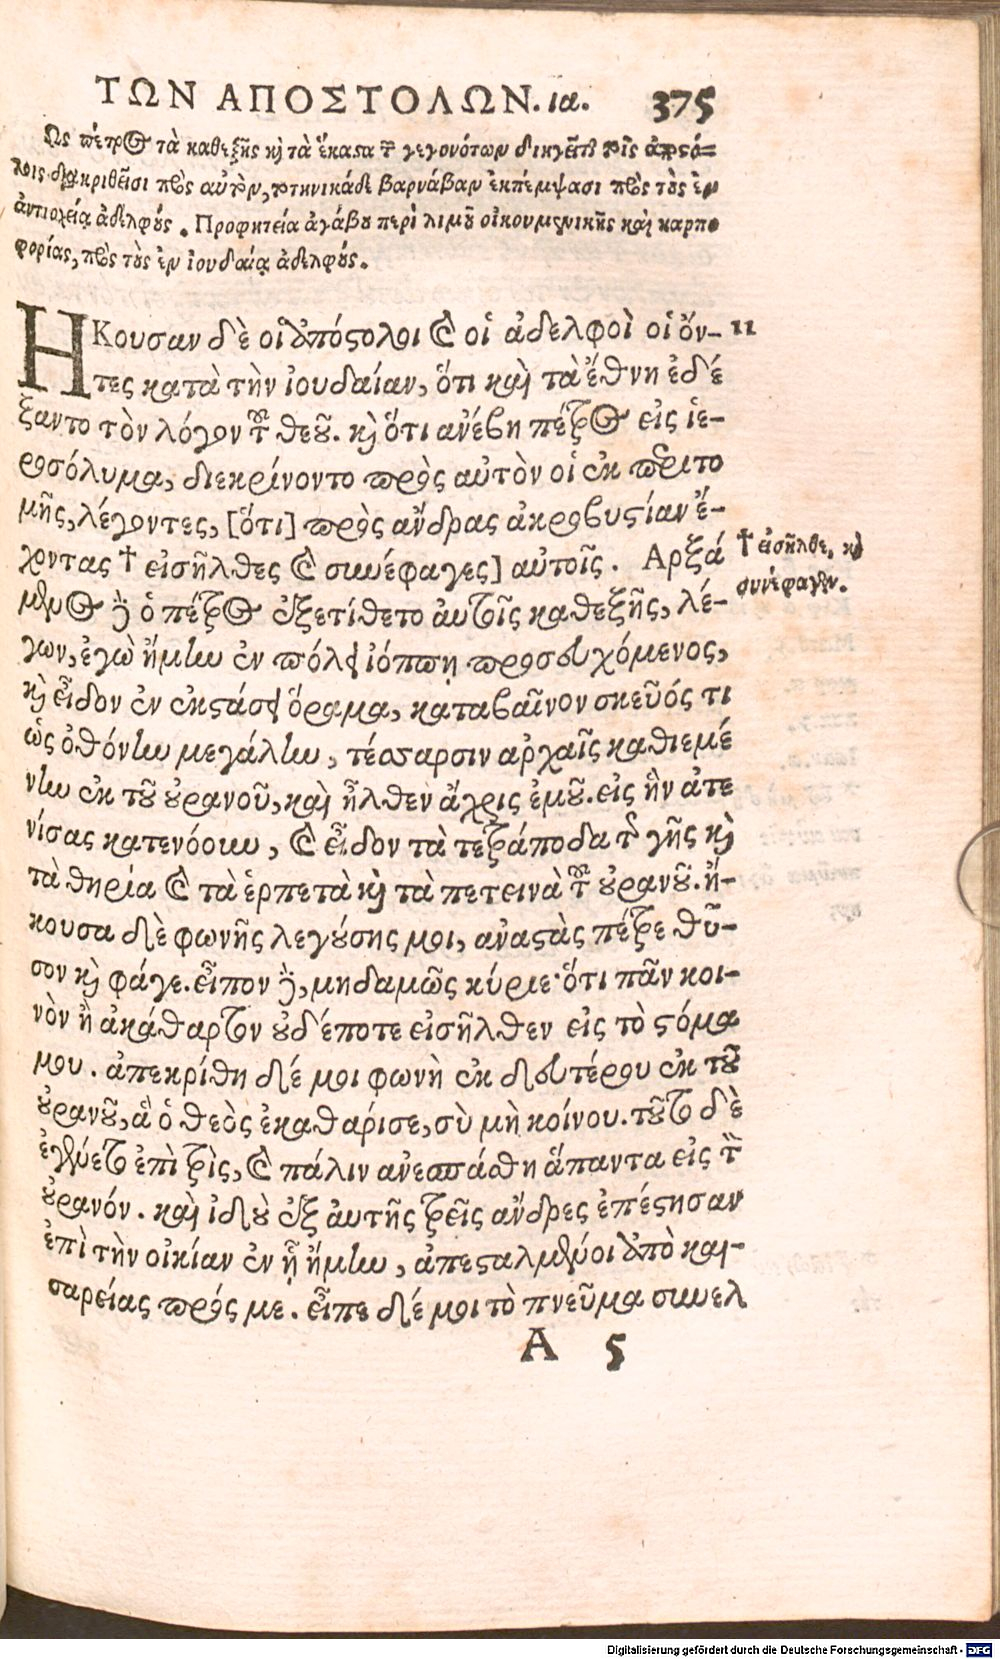 ΤΩΝ ΑΠΟΣΤΟΛΩΝ. ια. 375
Ως πέτρος τὰ καθεξῆς κὶ τὰ ἕκαστα τῶν γεγονότων διηγεῖται τοῖς ἀποστό=
λοις διακριθεῖσι πρὸς αὐτὸν, τηνικάδε βαρνάβαν ἐκπέμψασι πρὸς τοὺς ἐν
ἀντιοχείᾳ ἀδελφούς. Προφητεία ἀγάβου περὶ λιμοῦ οἰκουμενικῆς καὶ καρπο
φορίας, πρὸς τοὺς ἐν ἰουδαίᾳ ἀδελφούς.
ΗΚουσαν δὲ οἱ ἀπόστολοι καὶ οἱ ἀδελφοὶ οἱ ὄν- 11
τες κατὰ τὴν ἰουδαίαν, ὅτι καὶ τὰ ἔθνη ἐδέ
ξαντο τὸν λόγον τοῦ θεοῦ. κὶ ὅτι ἀνέβη πέτρος εἰς ἱε-
ροσόλυμα, διεκρίνοντο πρὸς αὐτὸν οἱ ἐκ περιτο
μῆς, λέγοντες, [ὅτι] πρὸς ἄνδρας ἀκροβυστίαν ἔ-
χοντας † εἰσῆλθες καὶ συνέφαγες] αὐτοῖς. Αρξά
† εἰσῆλθε, κὶ
συνέφαγεν.
μενος δὲ ὁ πέτρος ἐξετίθετο ἀυτοῖς καθεξῆς, λέ-
γων, ἐγὼ ἤμην ἐν πόλει ἰόππῃ προσευχόμενος,
κὶ εἶδον ἐν ἐκστάσει ὅραμα, καταβαῖνον σκεῦός τι
ὡς ὀθόνην μεγάλην, τέσσαρσιν ἀρχαῖς καθιεμέ
νην ἐκ τοῦ οὐρανοῦ, καὶ ἦλθεν ἄχρις ἐμοῦ. εἰς ἣν ἀτε
νίσας κατενόουν, καὶ εἶδον τὰ τετράποδα τῆς γῆς κὶ
τὰ θηρία καὶ τὰ ἑρπετὰ κὶ τὰ πετεινὰ τοῦ οὐρανοῦ. ἤ-
κουσα δὲ φωνῆς λεγούσης μοι, ἀναστὰς πέτρε θῦ-
σον κὶ φάγε. εἶπον δὲ, μηδαμῶς κύριε· ὅτι πᾶν κοι-
νὸν ἢ ἀκάθαρτον οὐδέποτε εἰσῆλθεν εἰς τὸ στόμα
μου. ἀπεκρίθη δέ μοι φωνὴ ἐκ δευτέρου ἐκ τοῦ
οὐρανοῦ, ἃ ὁ θεὸς ἐκαθάρισε, σὺ μὴ κοίνου. τοῦτο δὲ
ἐγένετο ἐπὶ τρὶς, καὶ πάλιν ἀνεσπάσθη ἅπαντα εἰς τὸν
οὐρανόν. καὶ ἰδοὺ ἐξ ἀυτῆς τρεῖς ἄνδρες ἐπέστησαν
ἐπὶ τὴν οἰκίαν ἐν ᾗ ἤμην, ἀπεσταλμένοι ἀπὸ και-
σαρείας πρός με. εἶπε δέ μοι τὸ πνεῦμα συνελ
A 5
Digitalisierung gefördert durch die Deutsche Forschungsgemeinschaft - DFG